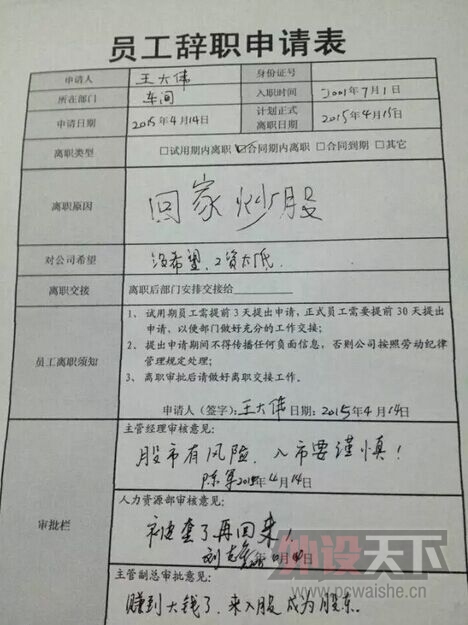 员工辞职申请表
申请人 王大伟 身份证号
所在部门 车间 入职时间 2001年7月1日
申请日期 2015年4月14日 计划正式离职日期 2015年4月15日
离职类型 □试用期内离职 ☑合同期内离职 □合同到期 □其它
离职原因 回家炒股
对公司希望 没希望,工资太低.
离职交接 离职后部门安排交接给
员工离职须知
1、试用期员工需提前3天提出申请,正式员工需要提前30天提出
申请,以便部门做好充分的工作交接;
2、提出申请期间不得传播任何负面信息,否则公司按照劳动纪律
管理规定处理;
3、离职审批后请做好离职交接工作。
申请人(签字):王大伟 日期:2015年4月14日
审批栏
主管经理审核意见:
股市有风险,入市要谨慎!
陈军 2015年4月14日
人力资源部审核意见:
被套了再回来!
主管副总审批意见:
赚到大钱了,来入股成为股东.
外设天下
www.pcwaishe.cn